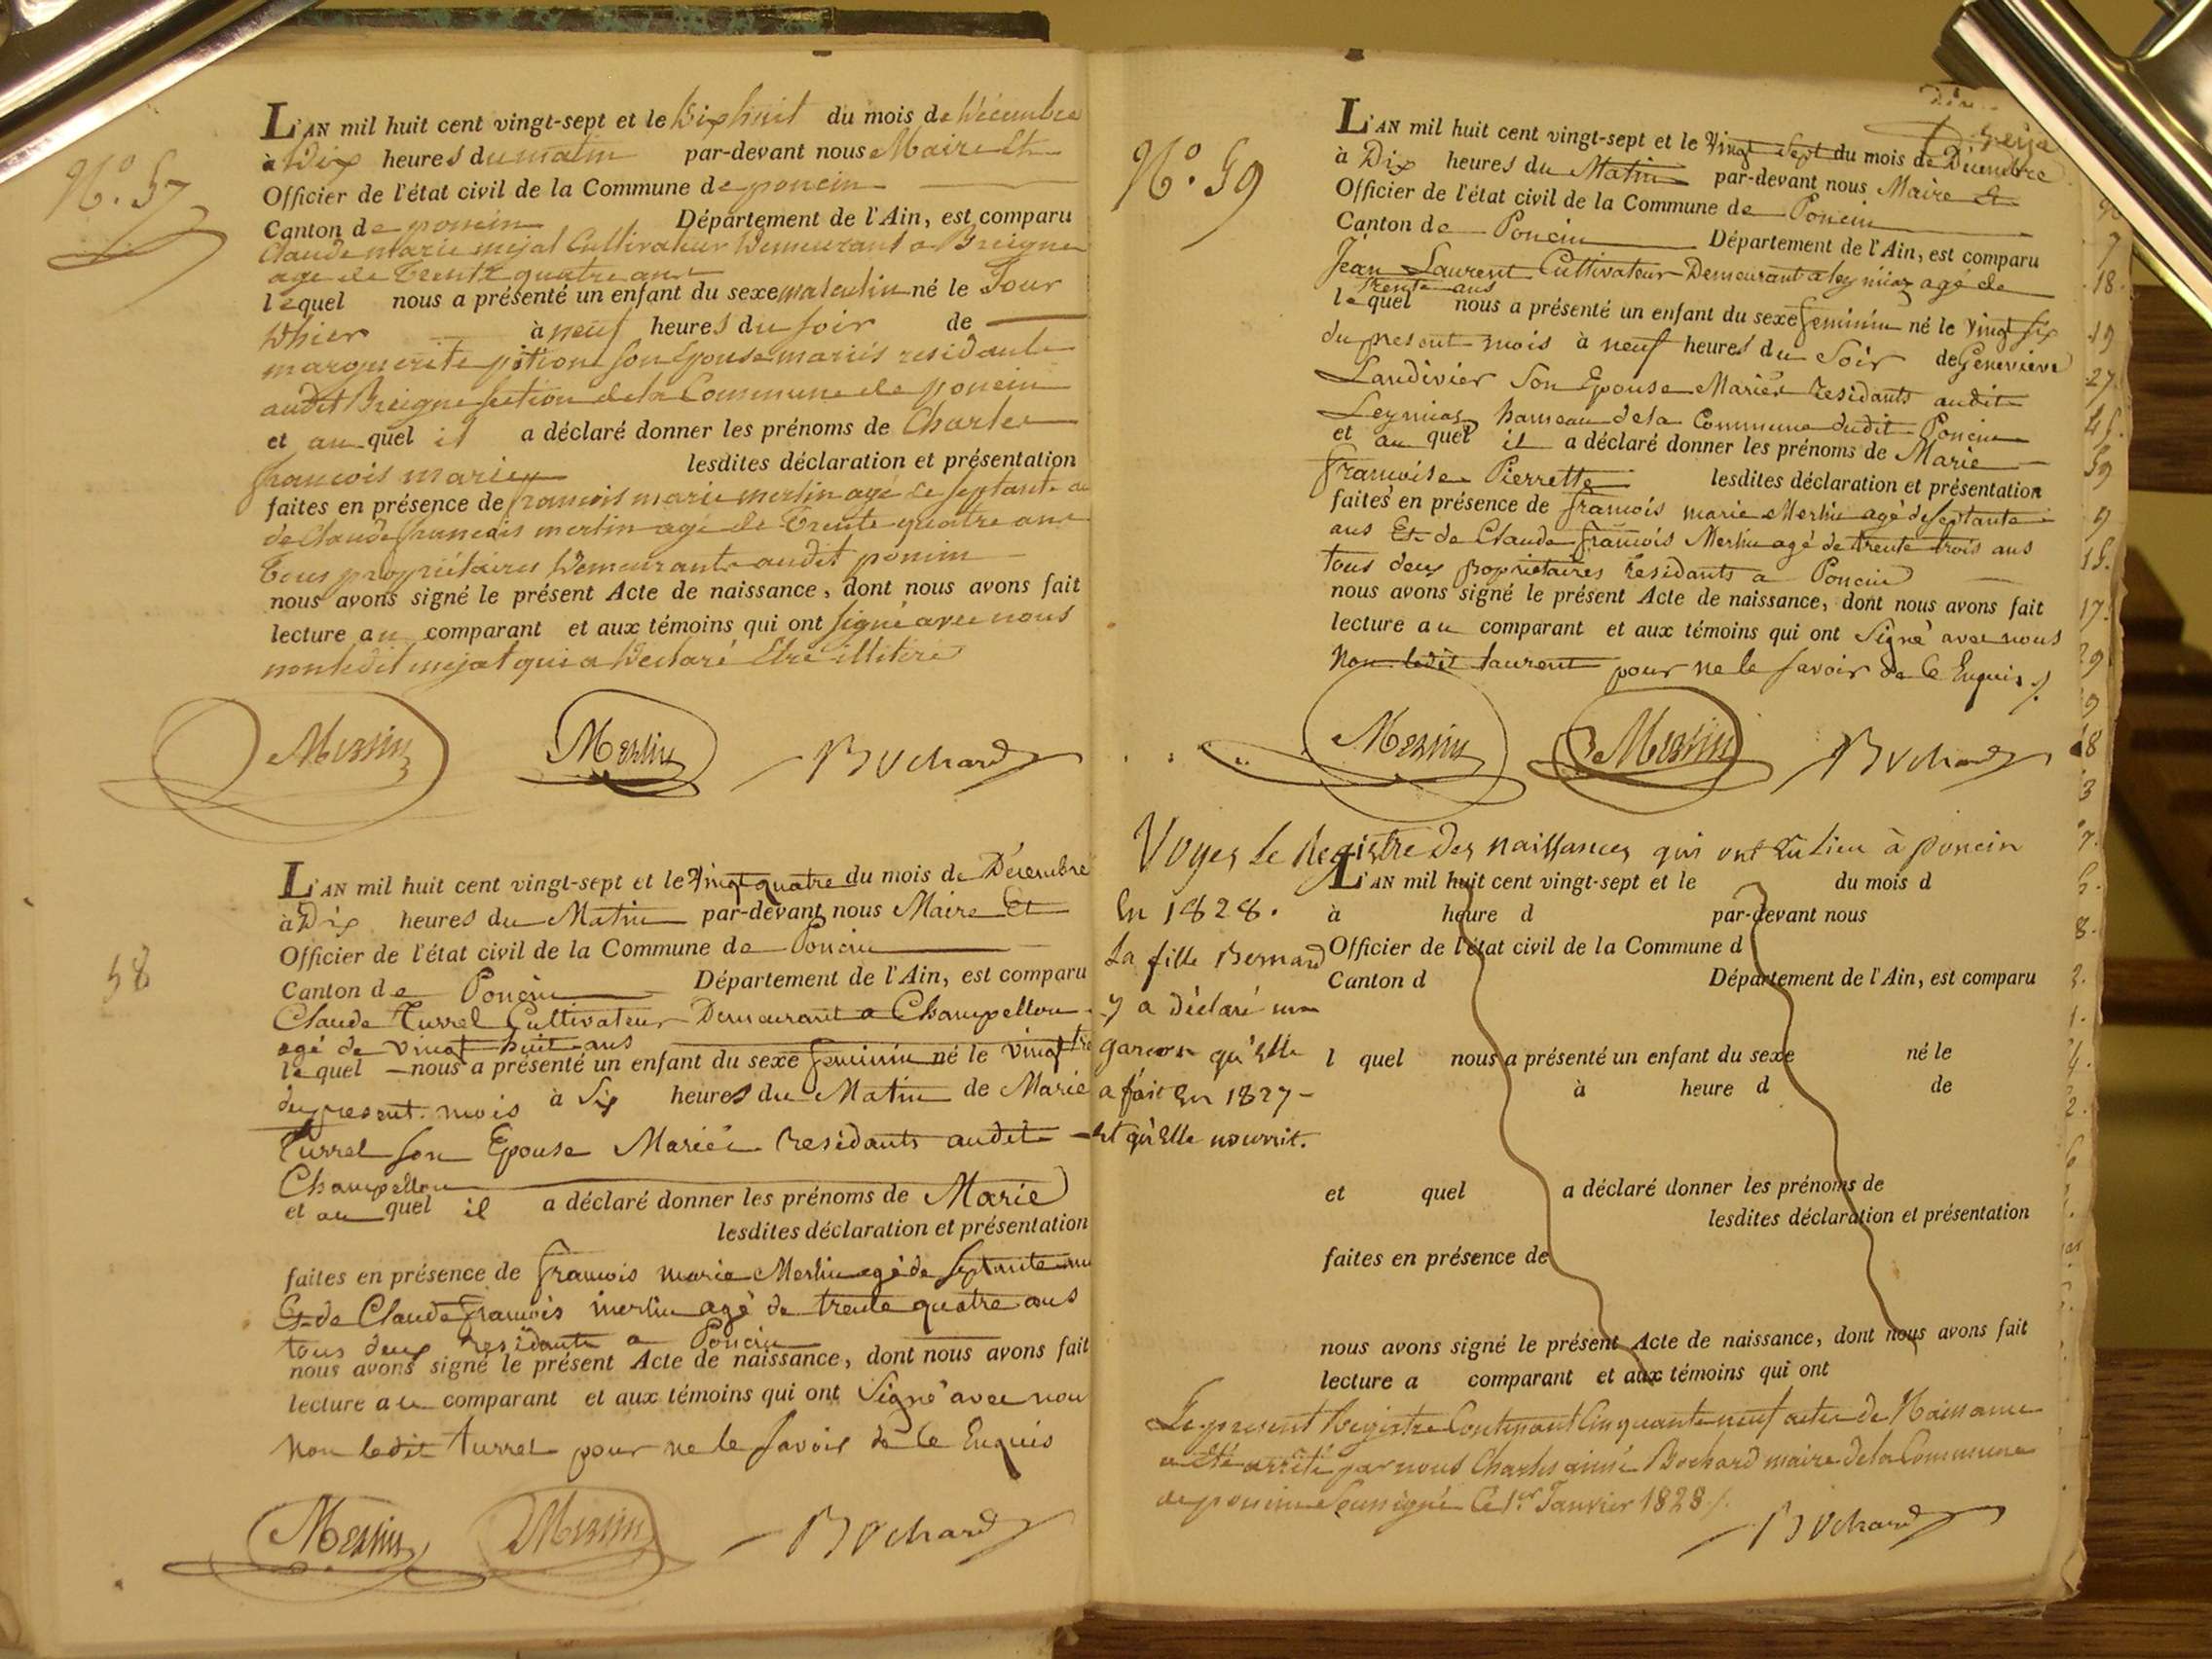 N.º 57
L'AN mil huit cent vingt-sept et le Dix huit du mois de Décembre
à Dix heures du matin par-devant nous Maire Et
Officier de l'état civil de la Commune de poncin
Canton de poncin Département de l'Ain, est comparu
Claude marie mejat Cultivateur Demeurant a Breigne
agé de Trente quatre ans
lequel nous a présenté un enfant du sexe masculin né le Jour
D'hier à neuf heures du soir de
marguerite pition son Epouse mariés residants
audit Breigne section de la Commune de poncin
et au quel il a déclaré donner les prénoms de Charles
francois marie lesdites déclaration et présentation
faites en présence de francois marie merlin agé de septante
de Claude francois merlin agé de Trente quatre ans
Tous propriétaires Demeurants audit poncin
nous avons signé le présent Acte de naissance, dont nous avons fait
lecture au comparant et aux témoins qui ont signé avec nous
non ledit mejat qui a Declaré Etre illitiré
Merlin Merlin Bochard
58
L'AN mil huit cent vingt-sept et le Vingt quatre du mois de Décembre
à Dix heures du Matin par-devant nous Maire Et
Officier de l'état civil de la Commune de Poncin
Canton de Poncin Département de l'Ain, est comparu
Claude Turrel Cultivateur Demeurant a Champellou
agé de vingt huit ans
lequel nous a présenté un enfant du sexe feminin né le vingt
du present mois à Six heures du Matin de Marie
Turrel son Epouse Mariés residants audit
Champellou
et au quel il a déclaré donner les prénoms de Marie
lesdites déclaration et présentation
faites en présence de francois marie Merlin agé de septante
Et de Claude francois merlin agé de trente quatre ans
tous deux residants a Poncin
nous avons signé le présent Acte de naissance, dont nous avons fait
lecture au comparant et aux témoins qui ont Signé avec nou
Non ledit turrel pour ne le savoir de Ce Enquis
Merlin Merlin Bochard
N.º 59
L'AN mil huit cent vingt-sept et le Vingt Sept du mois de Décembre
à Dix heures du Matin par-devant nous Maire Et
Officier de l'état civil de la Commune de Poncin
Canton de Poncin Département de l'Ain, est comparu
Jean Laurent Cultivateur Demeurant a leymiaz agé de
trente ans
lequel nous a présenté un enfant du sexe feminin né le Vingt six
du present mois à neuf heures du Soir de Genevieve
Landivier Son Epouse Mariés residants audit
Leymiaz hameau de la Commune dudit Poncin
et au quel il a déclaré donner les prénoms de Marie
francoise Pierrette lesdites déclaration et présentation
faites en présence de francois marie Merlin agé de septante
ans Et de Claude francois Merlin agé de trente trois ans
tous deux propriétaires residants a Poncin
nous avons signé le présent Acte de naissance, dont nous avons fait
lecture au comparant et aux témoins qui ont Signé avec nous
Non ledit laurent pour ne le savoir de Ce Enquis ./.
Merlin Merlin Bochard
Voyez le Registre des naissances qui ont Eu Lieu à poncin
En 1828.
La fille Bernard
y a déclaré un
garçon qu'Elle
a fait En 1827 -
et qu'Elle nourrit.
L'AN mil huit cent vingt-sept et le du mois d
à heure d par-devant nous
Officier de l'état civil de la Commune d
Canton d Département de l'Ain, est comparu
l quel nous a présenté un enfant du sexe né le
à heure d de
et quel a déclaré donner les prénoms de
lesdites déclaration et présentation
faites en présence de
nous avons signé le présent Acte de naissance, dont nous avons fait
lecture a comparant et aux témoins qui ont
Le present Registre Contenant Cinquante neuf actes de Naissance
a été arrêté par nous Charles aimé Bochard maire de la Commune
de poncin Soussigné Ce 1.er Janvier 1828 ./.
Bochard